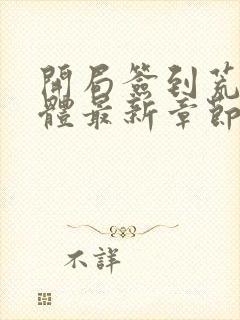 開局簽到荒
體最新章節
不詳